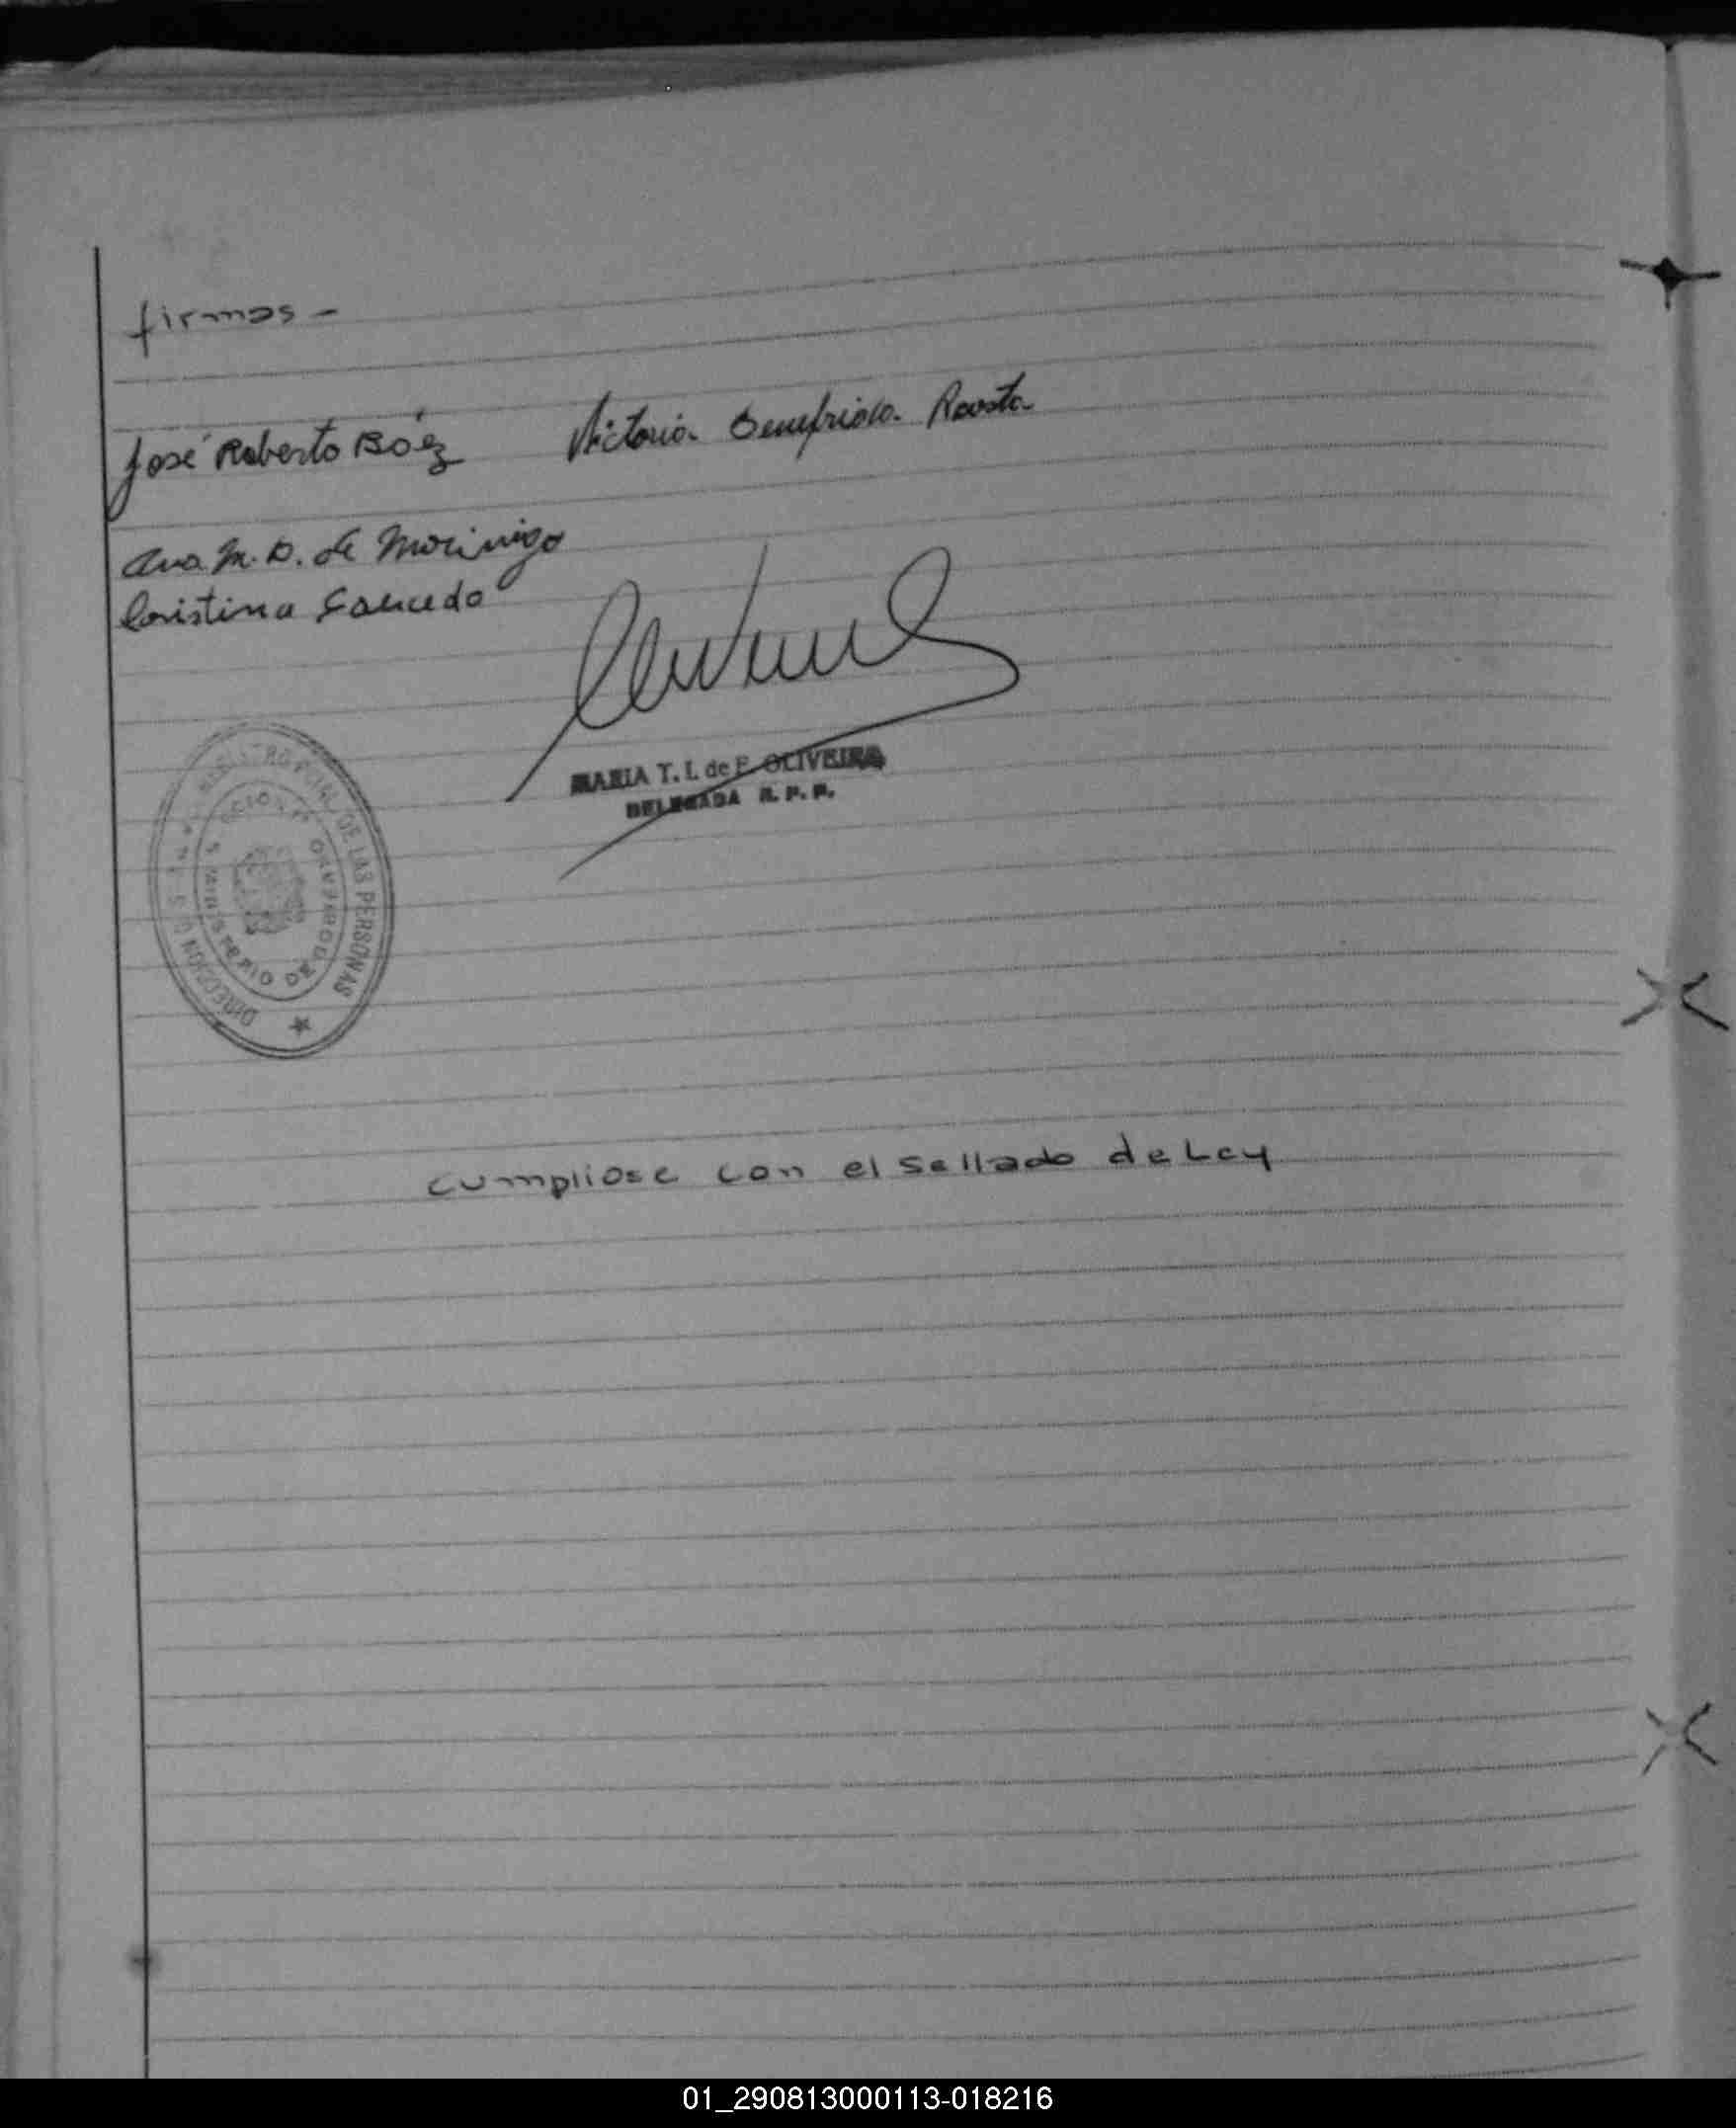 firmas -
José Roberto Báez Victoria Benefrida Acosta
Ana M. D. de Morinigo
Cristina Saucedo
MARIA T. I. de F. OLIVEIRA
DELEGADA R. P. P.
DIRECCION REGISTRO DE LAS PERSONAS
MINISTERIO DE GOBIERNO
cumpliose con el sellado de Ley
01_290813000113-018216